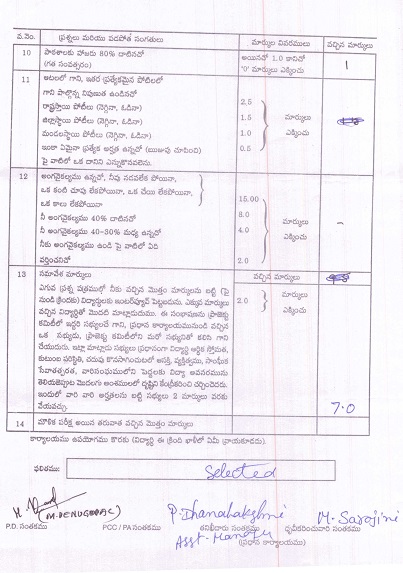 వ.నెం. ప్రశ్నలు మరియు వడపోత సంగతులు మార్కుల వివరములు వచ్చిన మార్కులు
10 పాఠశాలకు హాజరు 80% దాటినచో అయినచో 1.0 కానిచో 1
(గత సంవత్సరం) '0' మార్కులు ఎక్కించు
11 ఆటలలో గాని, ఇతర ప్రత్యేకమైన పోటీలలో
గాని పాల్గొన్న నిపుణత ఉండినచో
రాష్ట్రస్థాయి పోటీలు (నెగ్గినా, ఓడినా) 2.5
జిల్లాస్థాయి పోటీలు (నెగ్గినా, ఓడినా) 1.5 మార్కులు
మండలస్థాయి పోటీలు (నెగ్గినా, ఓడినా) 1.0 ఎక్కించు
ఇంకా ఏమైనా ప్రత్యేక అర్హత ఉన్నచో (ఋజువు చూపించి) 0.5
పై వాటిలో ఒక దానిని ఎన్నుకొనవలెను.
12 అంగవైకల్యము ఉన్నచో, నీవు నడవలేక పోయినా,
ఒక కంటి చూపు లేకపోయినా, ఒక చేయి లేకపోయినా, 15.00
ఒక కాలు లేకపోయినా
నీ అంగవైకల్యము 40% దాటినచో 8.0 మార్కులు
నీ అంగవైకల్యము 40-30% మధ్య ఉన్నచో 4.0 ఎక్కించు -
నీకు అంగవైకల్యము ఉండి పై వాటిలో ఏది
వర్తించనిచో 2.0
13 సమావేశ మార్కులు వచ్చిన మార్కులు
ఎగువ ప్రశ్న పత్రములో నీకు వచ్చిన మొత్తం మార్కులను బట్టి (పై 2.0 మార్కులు
నుండి క్రిందకు) విద్యార్థులకు ఇంటర్వ్యూవ్ పెట్టబడును. ఎక్కువ మార్కులు ఎక్కించు
వచ్చిన విద్యార్థితో మొదటి మాట్లాడుదుము. ఈ సంభాషణను ప్రాజెక్టు
కమిటీలో ఇద్దరి సభ్యులచే గాని, ప్రధాన కార్యాలయమునుండి వచ్చిన
ఒక సభ్యుడు, ప్రాజెక్టు కమిటీలోని మరో సభ్యునితో కలిసి గాని
చేయుదురు. ఇట్లా మాట్లాడు సభ్యులు ప్రధానంగా విద్యార్థి ఆర్థిక స్తోమత,
కుటుంబ పరిస్థితి, చదువు కొనసాగించుటలో ఆసక్తి, వ్యక్తిత్వము, సాంఘిక
సేవాతత్పరత, వారిసంఘములోని పెద్దలకు విద్యా అవవరమును
తెలియజెప్పుట మొదలగు అంశములలో దృష్టిని కేంద్రీకరించి చర్చించెదరు.
ఇందులో వారి వారి అర్హతలను బట్టి సభ్యులు 2 మార్కులు వరకు
వేయవచ్చు. 7.0
14 మౌళిక పరీక్ష అయిన తరువాత వచ్చిన మొత్తం మార్కులు
కార్యాలయము ఉపయోగము కొరకు (విద్యార్థి ఈ క్రింది ఖాళీలో ఏమీ వ్రాయకూడదు).
ఫలితము: Selected
(M.VENUGOPAL) P. Dhanalakshmi M. Sarojini
P.D. సంతకము PCC / PA సంతకము తనిఖీదారు సంతకము ధృవీకరించువారి సంతకము
Asst. Manager (ప్రధాన కార్యాలయము)